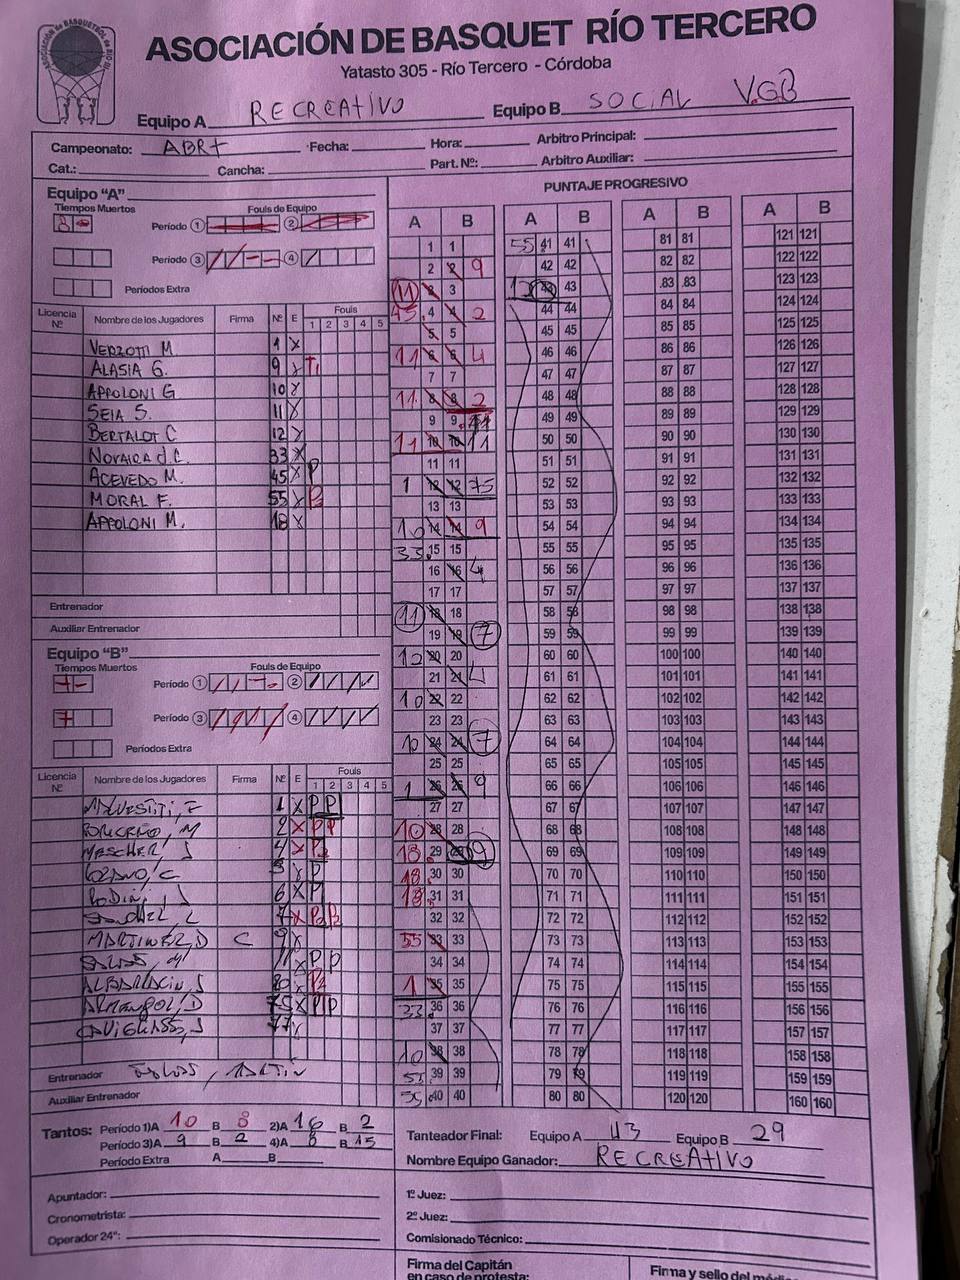 ASOCIACIÓN de BASQUETBOL de RÍO
ASOCIACIÓN DE BASQUET RÍO TERCERO
Yatasto 305 - Río Tercero - Córdoba
Equipo A RECREATIVO Equipo B SOCIAL V.G.B
Campeonato: Fecha: Hora: Arbitro Principal:
Cat.: Cancha: Part. Nº: Arbitro Auxiliar:
Equipo "A"
Tiempos Muertos Fouls de Equipo
Período 1 2
Período 3 4
Períodos Extra
Licencia Nº Nombre de los Jugadores Firma Nº E Fouls
1 2 3 4 5
VERZOTTI M 1 X
ALASIA G. 9 X
APPOLONI G 10 X
SEIA S. 11 X
BERTALOT C 12 X
33 X
ACEVEDO M. 45 X P
MORAL F. 55 X
APPOLONI M. 18 X
Entrenador
Auxiliar Entrenador
Equipo "B"
Tiempos Muertos Fouls de Equipo
Período 1 2
Período 3 4
Períodos Extra
Licencia Nº Nombre de los Jugadores Firma Nº E Fouls
1 2 3 4 5
1 X P P
2 X P P
4 X
X P
6 X P
7 X
MARTINEZ, D C 9 X
11 X P P
X
75 X P P
77 X
Entrenador
Auxiliar Entrenador
Tantos: Período 1)A 10 B 8 2)A 16 B 2
Período 3)A 9 B 2 4)A 8 B 15
Período Extra A B
Apuntador:
Cronometrista:
Operador 24":
PUNTAJE PROGRESIVO
A B A B A B A B
1 1 55 41 41 81 81 121 121
2 2 9 42 42 82 82 122 122
11 3 3 12 43 43 83 83 123 123
45 4 4 2 44 44 84 84 124 124
5 5 45 45 85 85 125 125
11 6 6 4 46 46 86 86 126 126
7 7 47 47 87 87 127 127
11 8 8 2 48 48 88 88 128 128
9 9 49 49 89 89 129 129
11 10 10 11 50 50 90 90 130 130
11 11 51 51 91 91 131 131
1 12 12 75 52 52 92 92 132 132
13 13 53 53 93 93 133 133
10 14 14 9 54 54 94 94 134 134
33 15 15 55 55 95 95 135 135
16 16 4 56 56 96 96 136 136
17 17 57 57 97 97 137 137
11 18 18 58 58 98 98 138 138
19 19 7 59 59 99 99 139 139
12 20 20 60 60 100 100 140 140
21 21 4 61 61 101 101 141 141
10 22 22 62 62 102 102 142 142
23 23 63 63 103 103 143 143
10 24 24 7 64 64 104 104 144 144
25 25 65 65 105 105 145 145
1 26 26 9 66 66 106 106 146 146
27 27 67 67 107 107 147 147
10 28 28 68 68 108 108 148 148
18 29 29 9 69 69 109 109 149 149
18 30 30 70 70 110 110 150 150
18 31 31 71 71 111 111 151 151
32 32 72 72 112 112 152 152
55 33 33 73 73 113 113 153 153
34 34 74 74 114 114 154 154
1 35 35 75 75 115 115 155 155
33 36 36 76 76 116 116 156 156
37 37 77 77 117 117 157 157
10 38 38 78 78 118 118 158 158
55 39 39 79 79 119 119 159 159
55 40 40 80 80 120 120 160 160
Tanteador Final: Equipo A 43 Equipo B 29
Nombre Equipo Ganador: RECREATIVO
1º Juez:
2º Juez:
Comisionado Técnico:
Firma del Capitán
en caso de protesta: